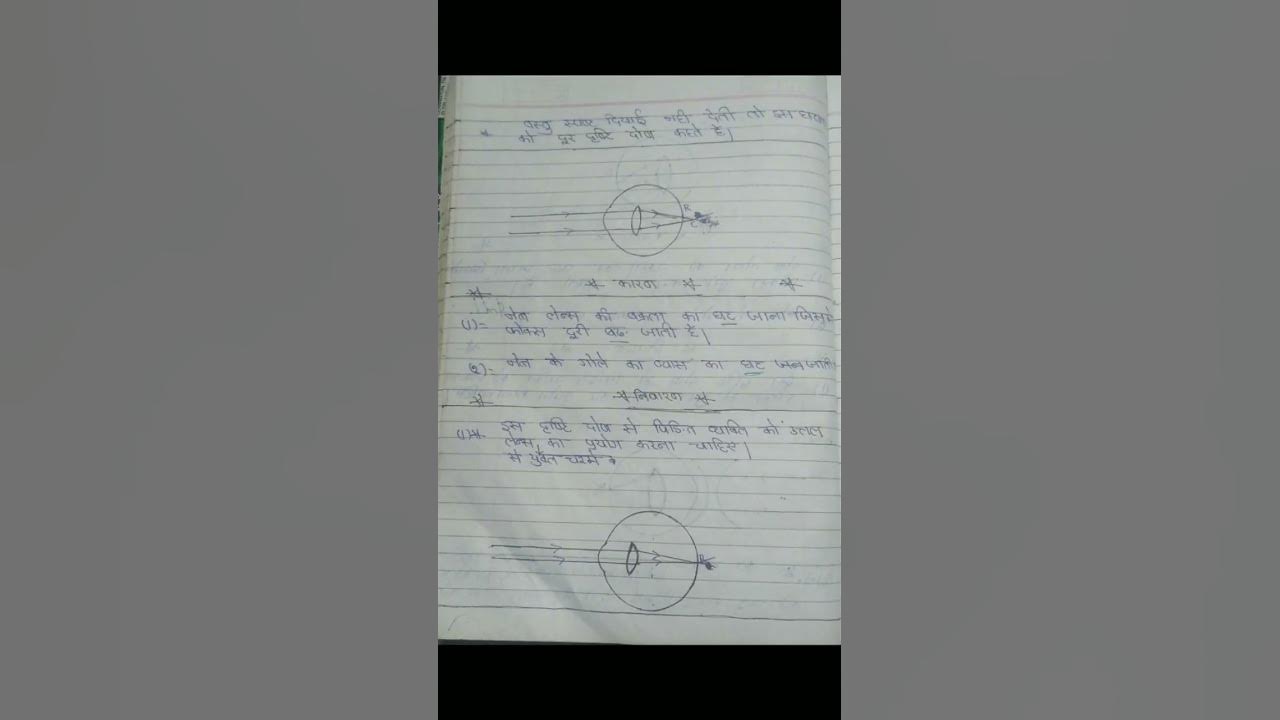 वस्तु स्पष्ट दिखाई नही देती तो इस
को दूर दृष्टि दोष कहते है।
R
* कारण *
(1)= नेत्र लेन्स की वक्रता का घट जाना जिससे
फोक्स दूरी बढ जाती है।
(2)= नेत्र के गोले का व्यास का घट
* निवारण *
(1) इस दृष्टि दोष से पिडित व्यक्ति को उतल
लेन्स का प्रयोग करना चाहिए।
से युक्त चश्मे
R